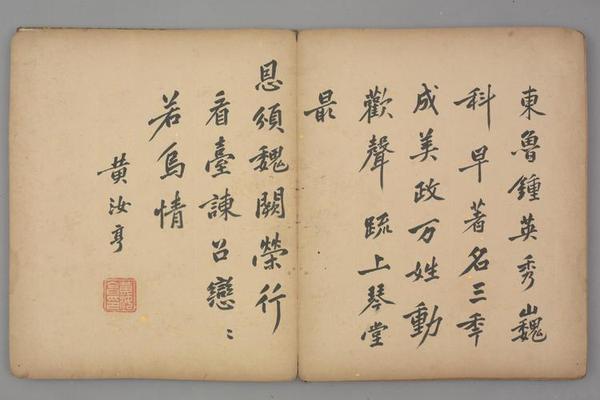 東魯鍾英秀巍
科早著名三年
成美政万姓動
歡聲疏上琴堂
最
恩頒魏闕榮行
看臺諫召戀〻
若烏情
黃汝亨